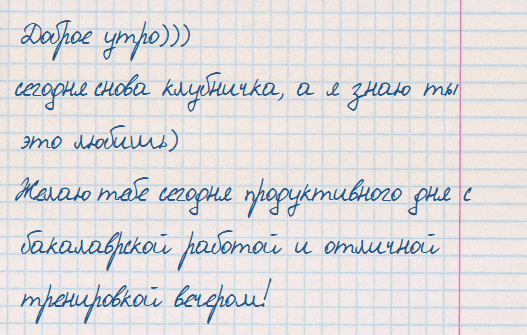 Доброе утро)))
сегодня снова клубничка, а я знаю ты
это любишь)
Желаю тебе сегодня продуктивного дня с
бакалаврской работой и отличной
тренировкой вечером!